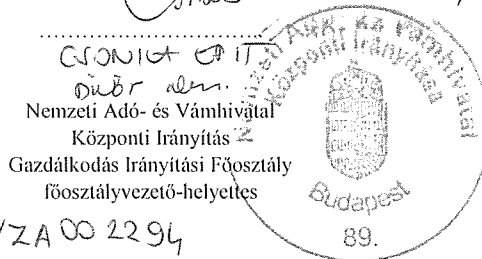 Nemzeti Adó- és Vámhivatal
Központi Irányítás
Gazdálkodás Irányítási Főosztály
főosztályvezető-helyettes
ZA 00 2294
Nemzeti Adó- és Vámhivatal
Központi Irányítása
Budapest
89.